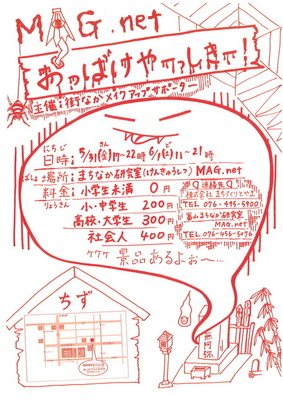 MAG.net
おっばけややっしきで!
主催:街なかメイクアップサポーター
にちじ
日時:5/31(金)17~22時 6/1(土)11~21時
ばしょ
場所:まちなか研究室(けんきゅうしつ) MAG.net
料金:小学生未満 0円
りょうきん
小・中学生 200円
高校・大学生 300円
社会人 400円
ケケケ 景品あるよぉ〜…
連絡先
株式会社まちづくりとやま
TEL 076-495-5900
富山まちなか研究室
MAG.net
TEL 076-456-5096
ちず